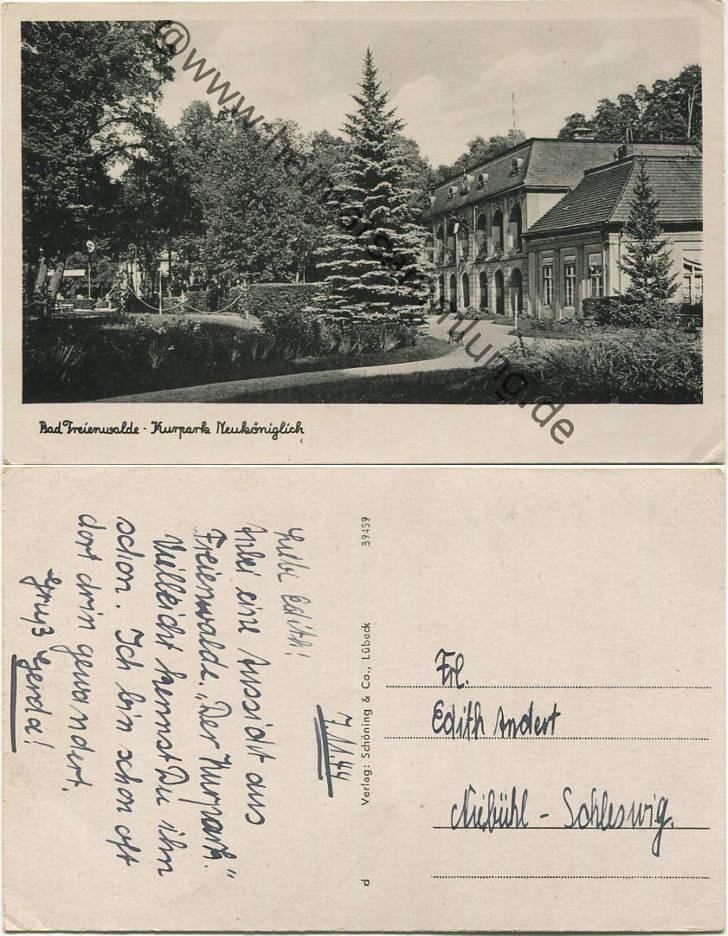 @www.heimatsammlung.de
Bad Freienwalde - Kurpark Neuköniglich
7/11.44
Liebe Edith!
Anbei eine Ansicht aus
Freienwalde. „Der Kurpark.“
Vielleicht kennst Du ihn
schon. Ich bin schon oft
dort drin gewandert.
Gruß Gerda!
39459
Verlag: Schöning & Co., Lübeck
d
Frl.
Edith Andert
Niebühl - Schleswig.